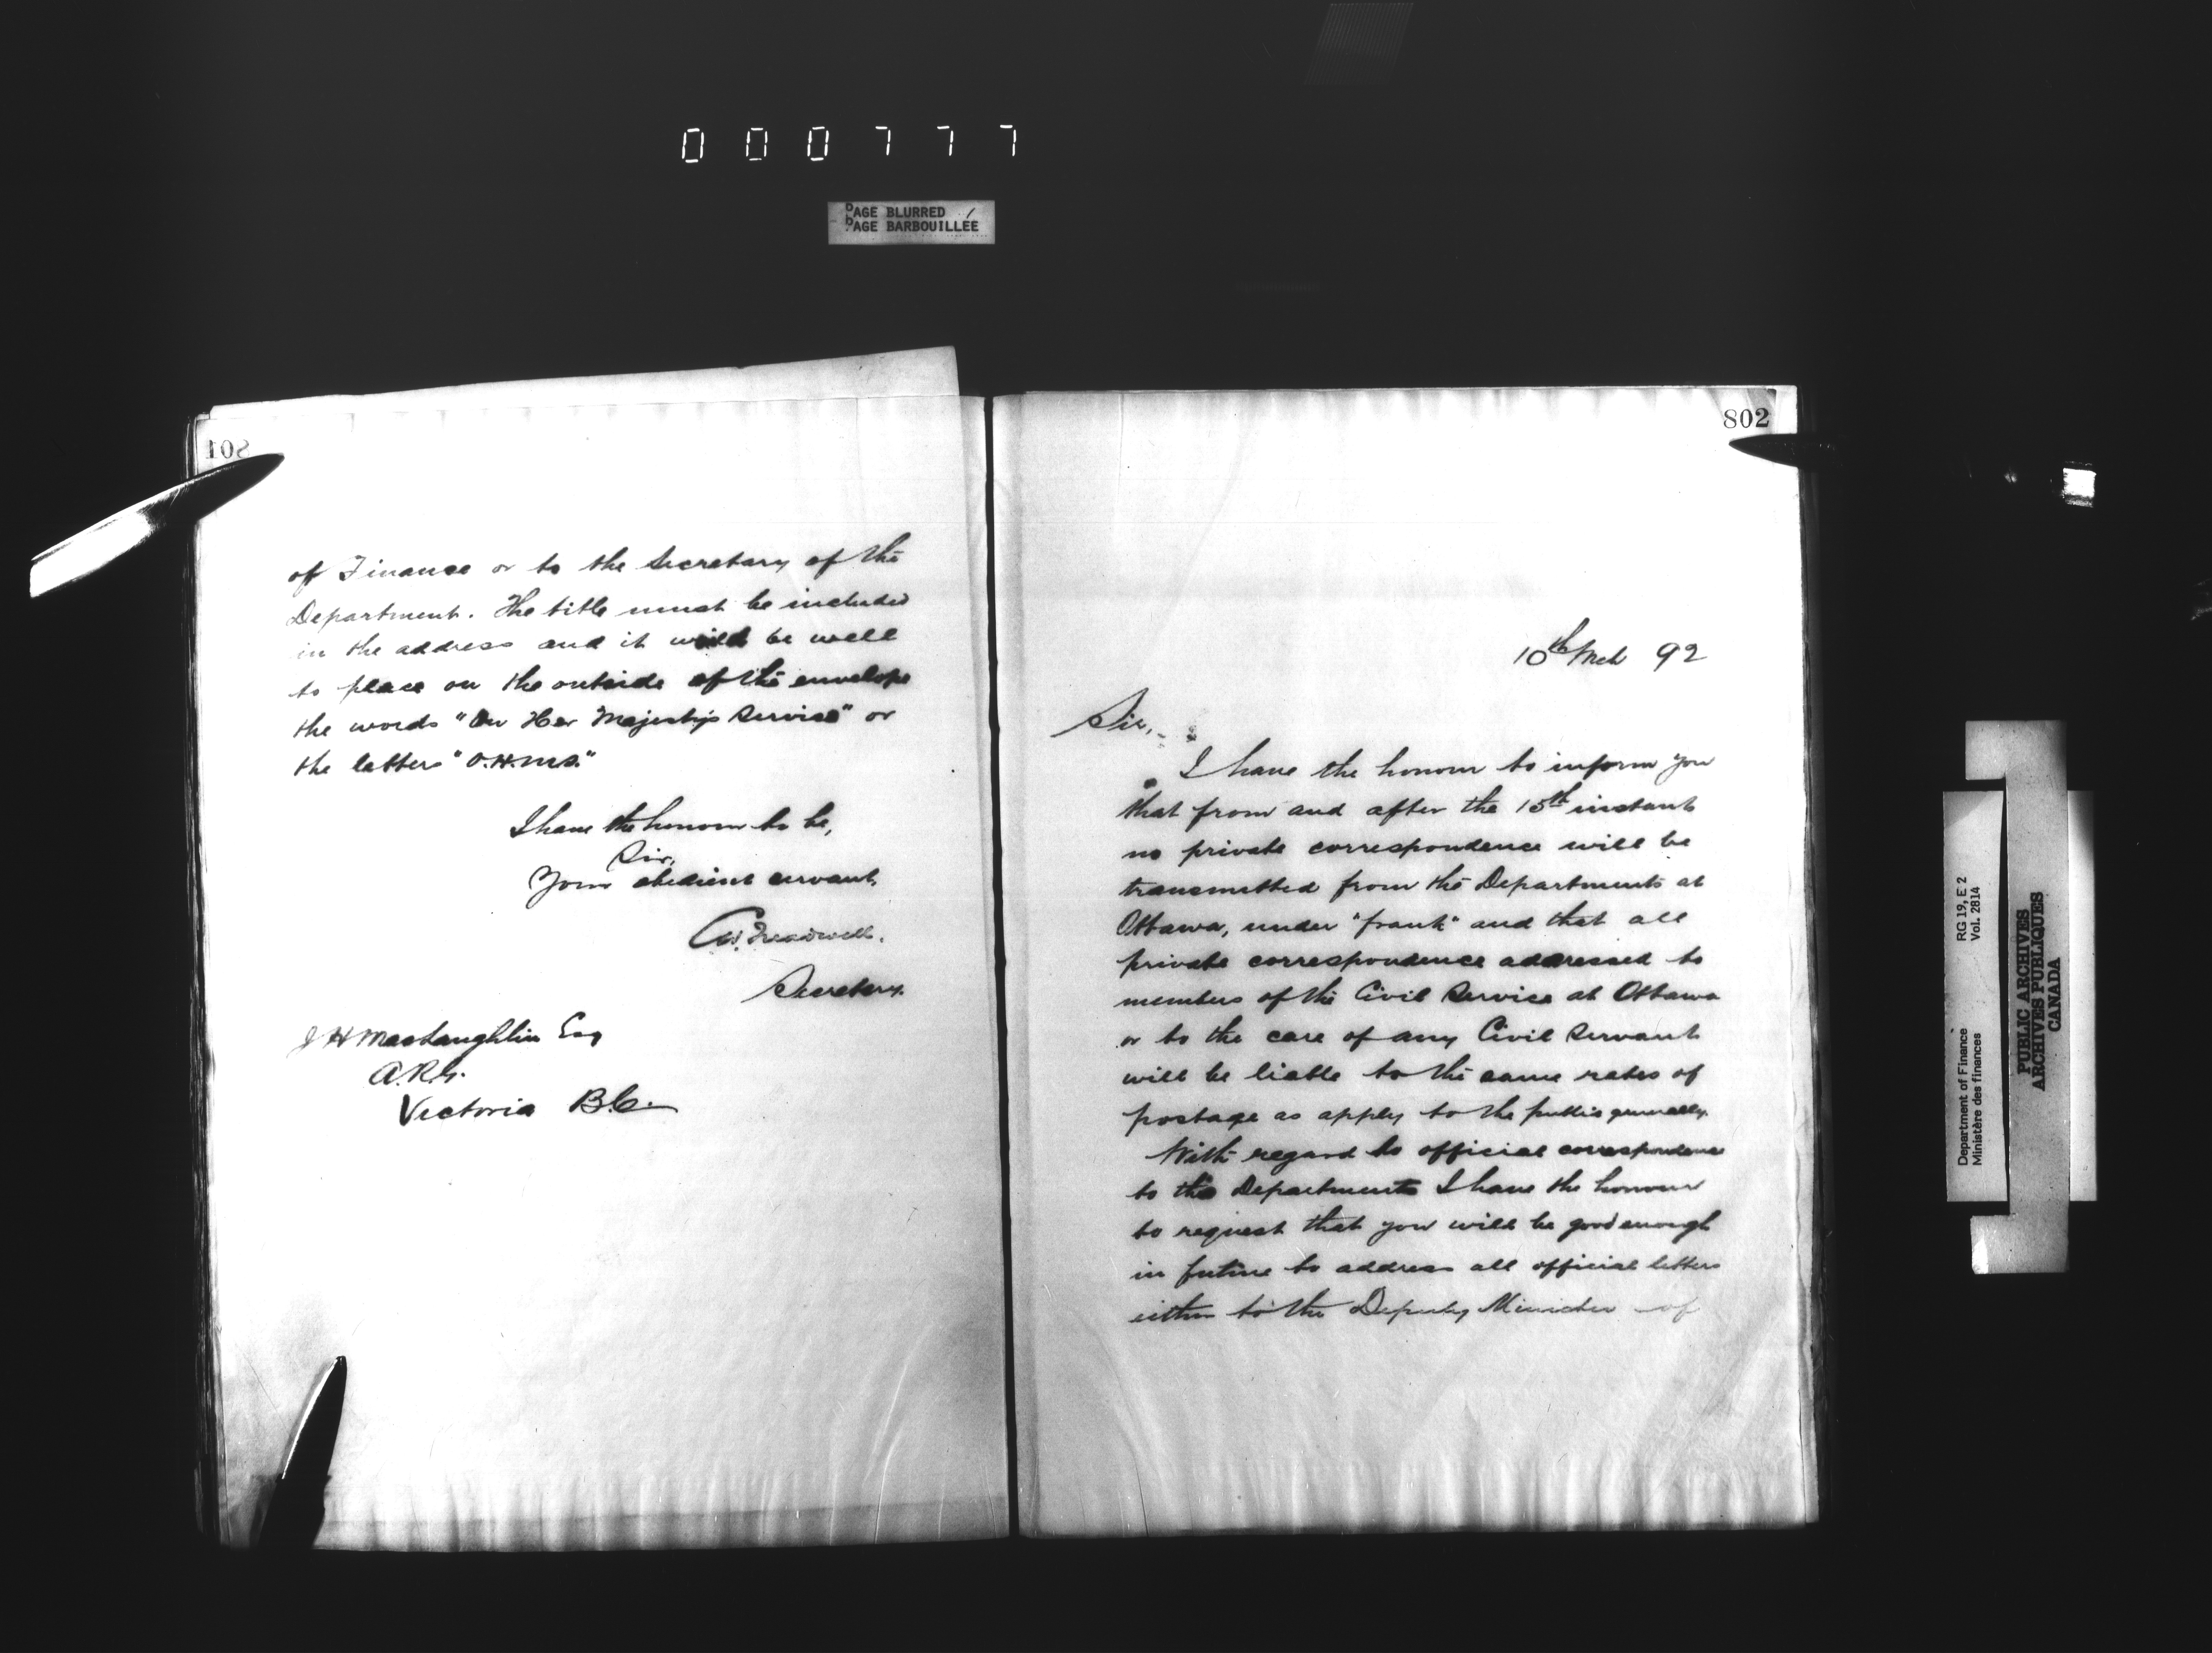 000777
PAGE BLURRED
PAGE BARBOUILLÉE
801
of Finance or to the Secretary of the
Department. The title must be included
in the address and it will be well
to place on the outside of the envelope
the words "On Her Majesty's Service" or
the letters "O.H.M.S."
I have the honour to be,
Sir,
Your obedient servant,
Treadwell.
Secretary.
J H MacLaughlin Esq
A.R.G.
Victoria B.C.
802
10th Mch 92
Sir,
I have the honour to inform you
that from and after the 15th instant
no private correspondence will be
transmitted from the Departments at
Ottawa, under "frank" and that all
private correspondence addressed to
members of the Civil Service at Ottawa
or to the care of any Civil Servant
will be liable to the same rates of
postage as apply to the public generally.
With regard to official correspondence
to the Department I have the honour
to request that you will be good enough
in future to address all official letters
either to the Deputy Minister of
Department of Finance
Ministère des finances
RG 19, E 2
Vol. 2814
PUBLIC ARCHIVES
ARCHIVES PUBLIQUES
CANADA